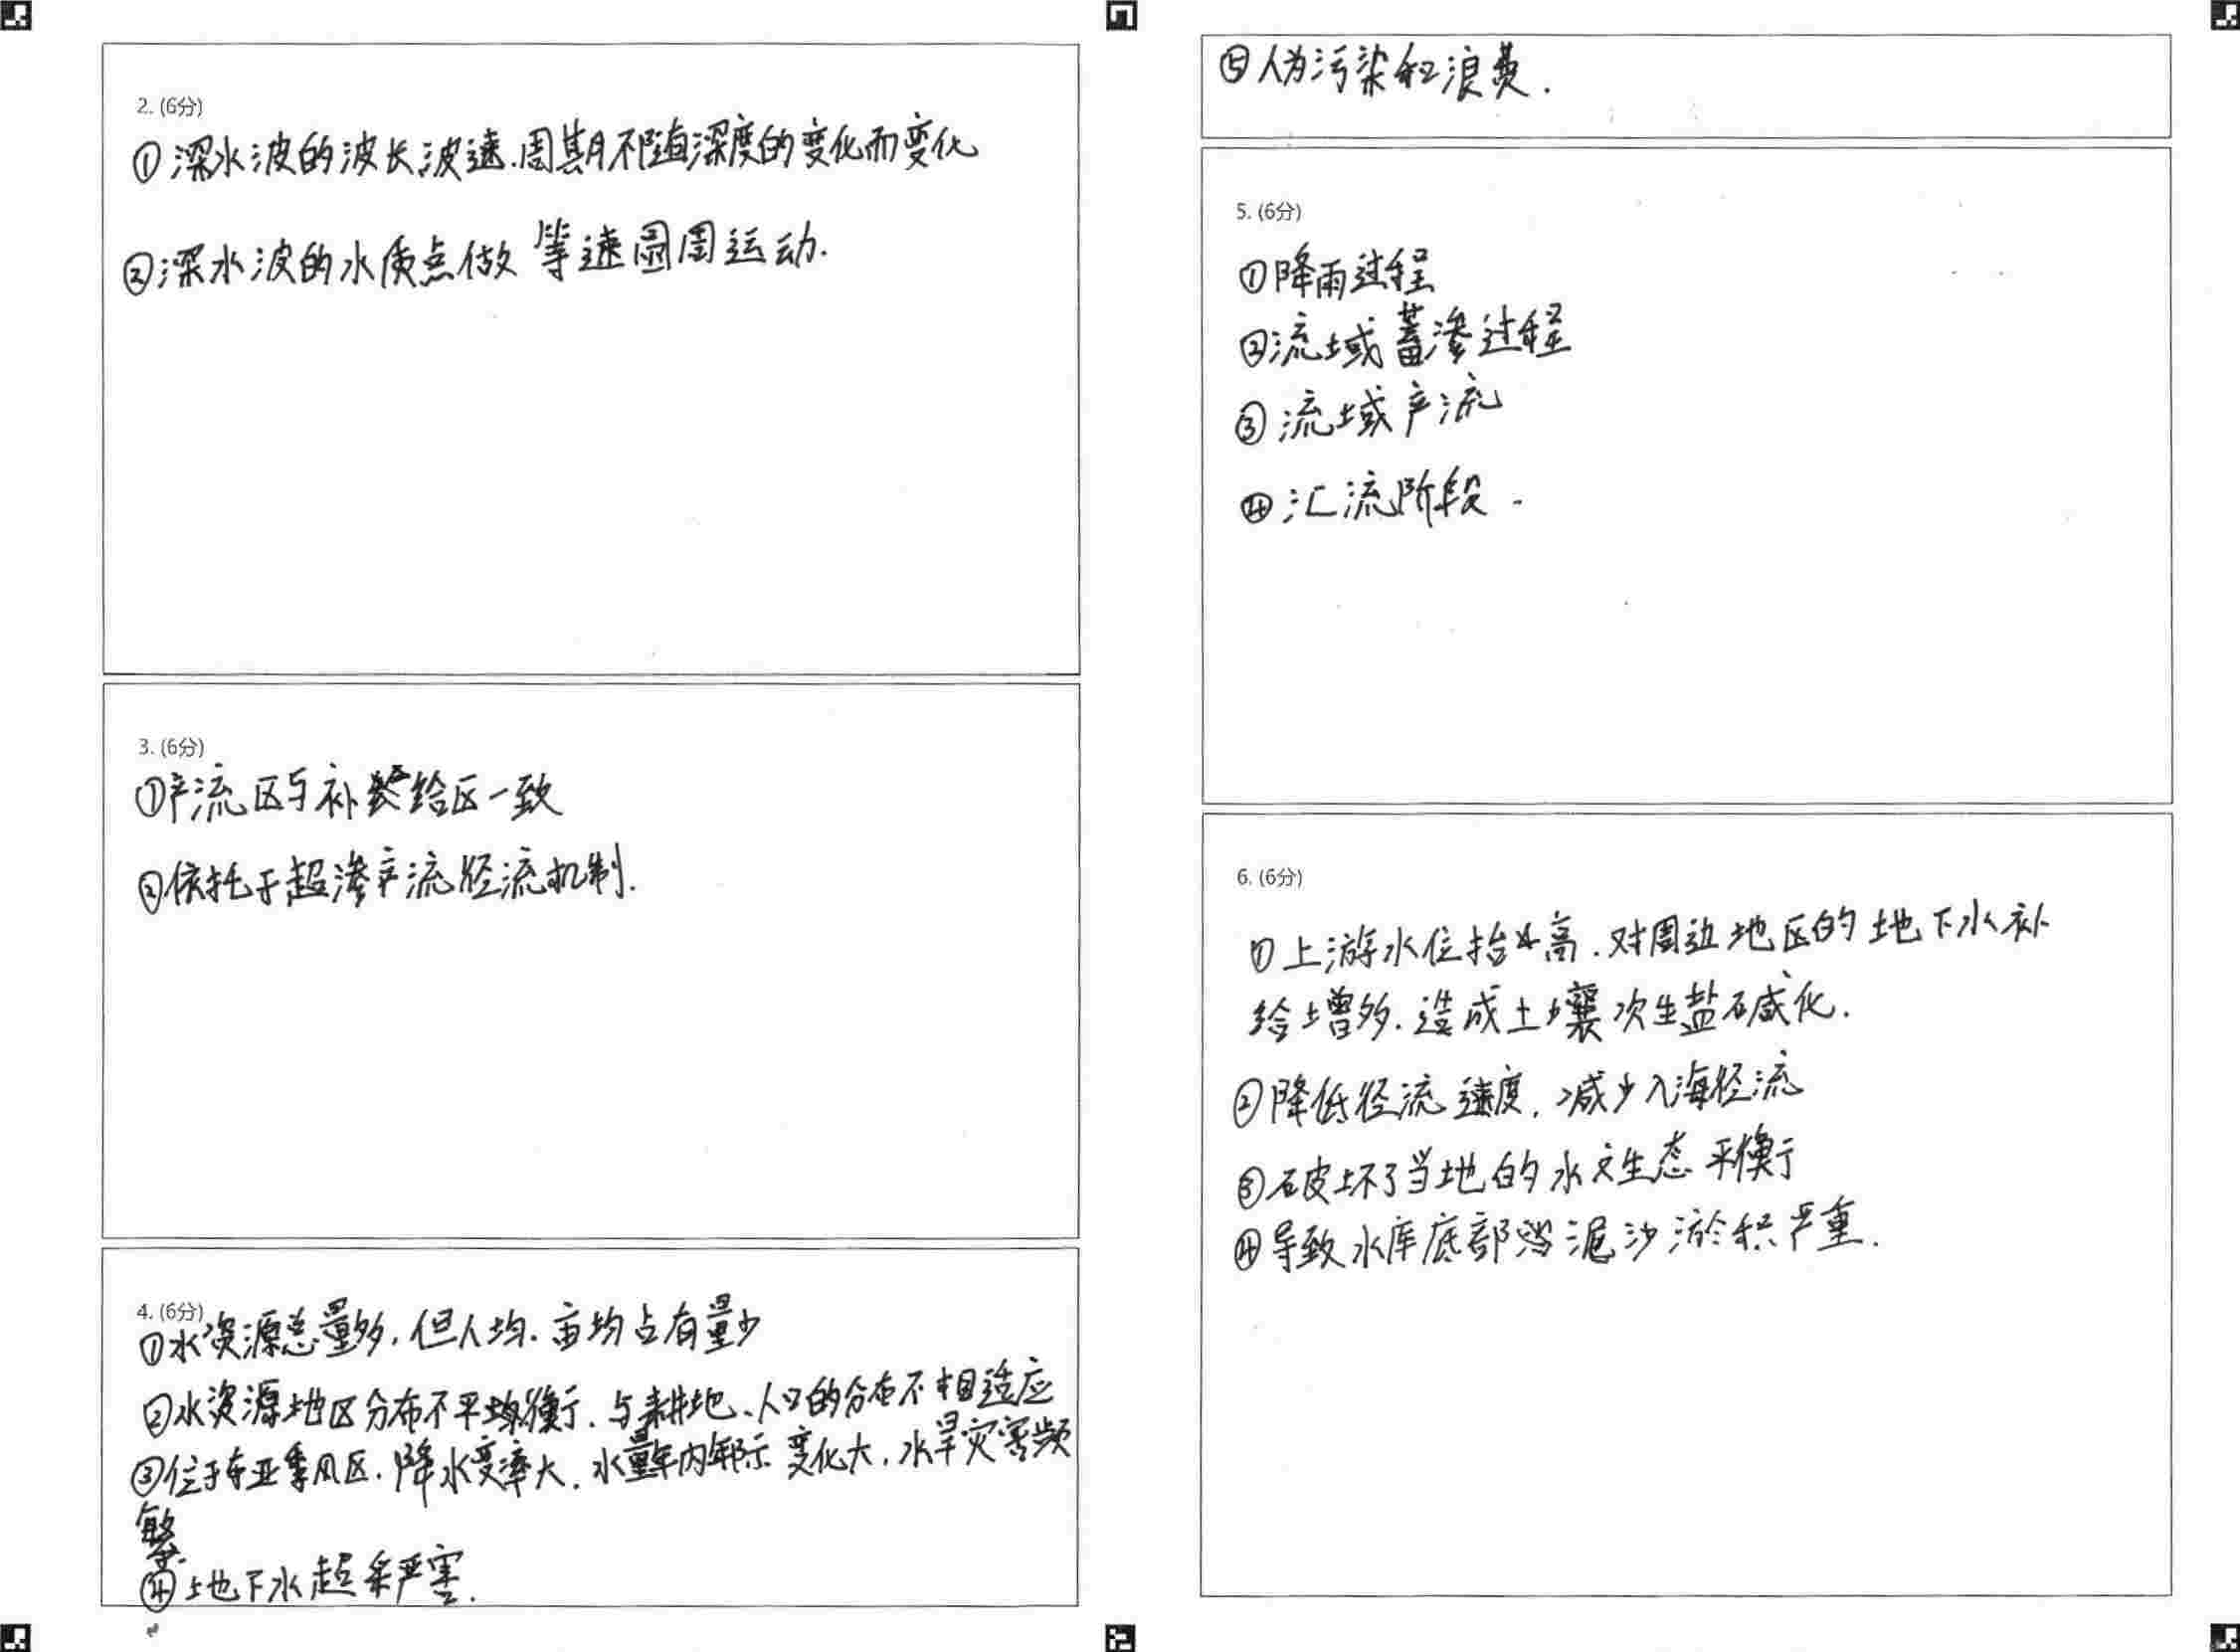 2. (6分)
①深水波的波长、波速.周期不随深度的变化而变化
②深水波的水质点做等速圆周运动.
3. (6分)
①产流区与补给区一致
②依托于超渗产流径流机制.
4. (6分)
①水资源总量多,但人均.亩均占有量少
②水资源地区分布不平衡.与耕地、人口的分布不相适应
③位于东亚季风区.降水变率大.水量年内年际变化大,水旱灾害频
繁
④地下水超采严害.
⑤人为污染和浪费.
5. (6分)
①降雨过程
②流域蓄渗过程
③流域产流
④汇流阶段.
6. (6分)
①上游水位抬高.对周边地区的地下水补
给增多.造成土壤次生盐碱化.
②降低径流速度,减少入海径流
③破坏了当地的水文生态平衡
④导致水库底部泥沙淤积严重.